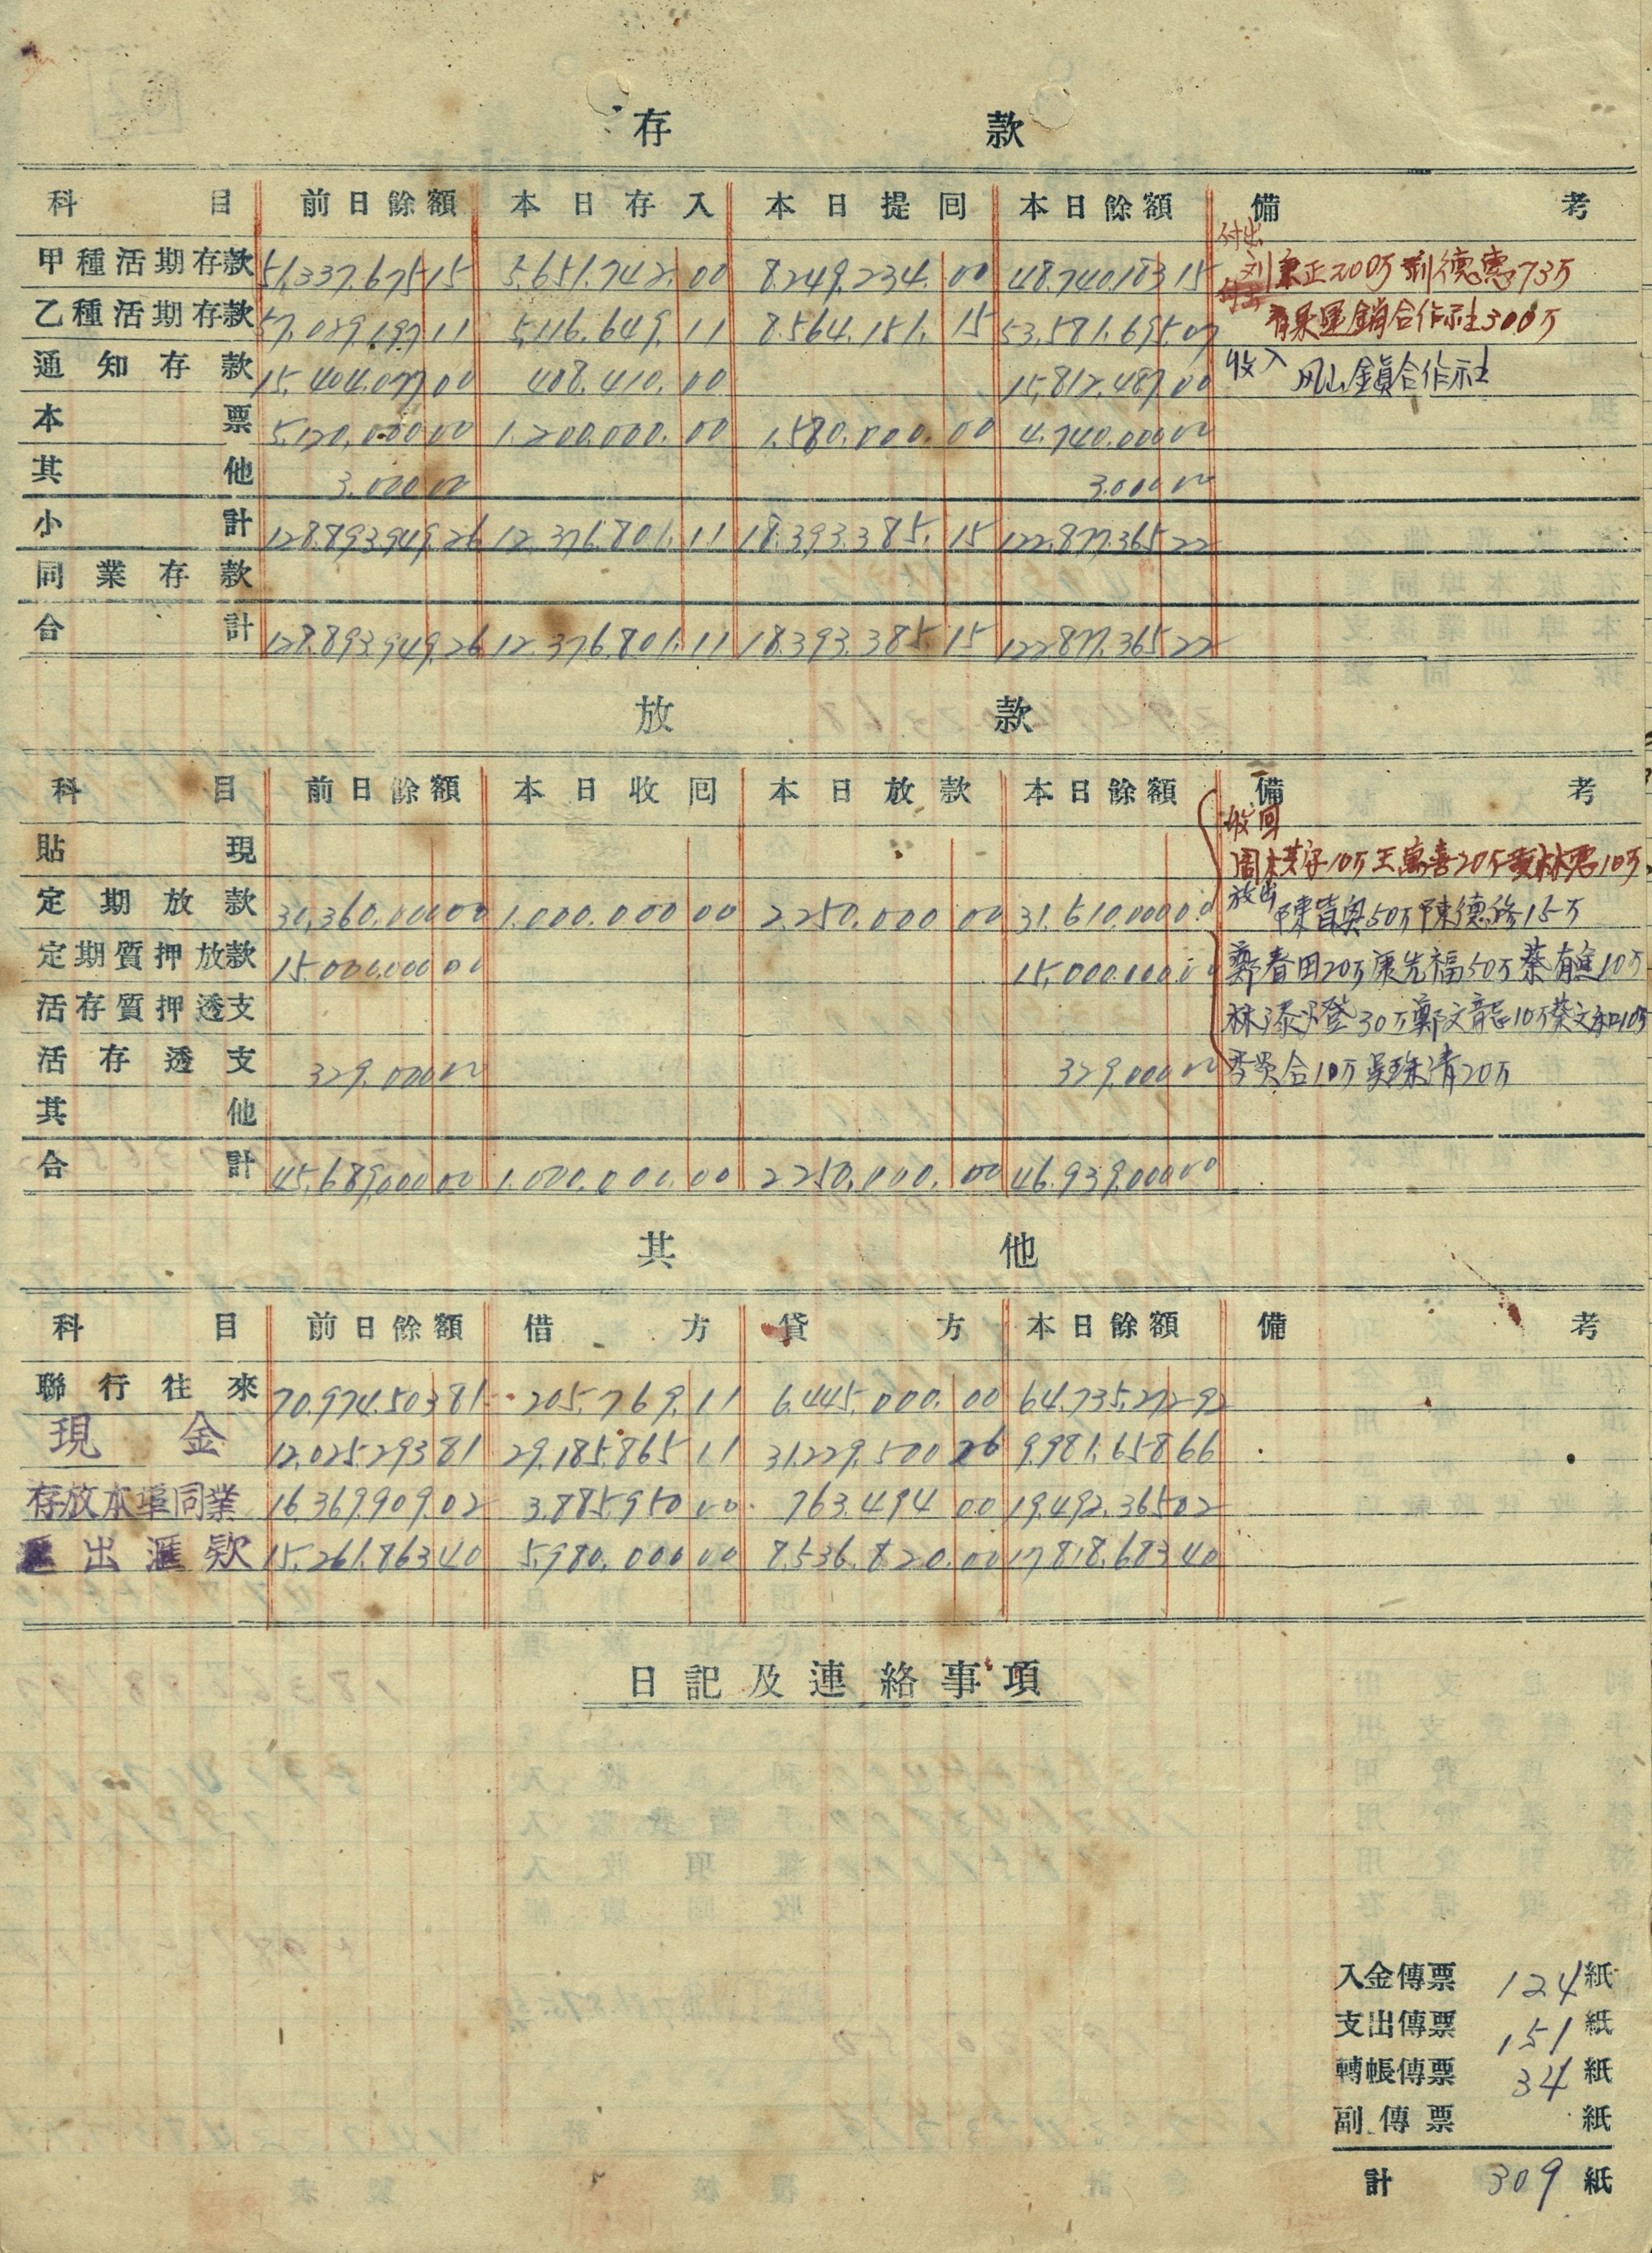 存款
科目 前日餘額 本日存入 本日提回 本日餘額 備考
付出
甲種活期存款 51,337,675 15 5,651,742.00 8,249,234.00 48,740,183 15 刘秉正200万 利德惠73万
乙種活期存款 57,029,197 11 5,116,649.11 8,564,151.15 53,581,695.07 付出 青果運銷合作社300万
通知存款 15,404,077 00 408,410.00 15,812,487 00 收入 凤山鎮合作社
本票 5,120,000 00 1,200,000.00 1,580,000.00 4,740,000 00
其他 3,000 00 3,000 00
小計 128,893,949.26 12,376,801.11 18,393,385.15 122,877,365 22
同業存款
合計 128,893,949.26 12,376,801.11 18,393,385.15 122,877,365 22
放款
科目 前日餘額 本日收回 本日放款 本日餘額 備考
收回
貼現 周 10万王萬喜20万 10万
定期放款 30,360,000 00 1,000,000 00 2,250,000 00 31,610,000 00 放出 陳 50万陳德修15万
定期質押放款 15,000,000 00 15,000,000.00 鄭春田20万康先福50万蔡有進10万
活存質押透支 林添燈30万鄭文龍10万蔡文和10万
活存透支 329,000 00 329,000 00 李 合10万吳珠清20万
其他
合計 45,689,000 00 1,000,000.00 2,250,000.00 46,939,000 00
其他
科目 前日餘額 借方 貸方 本日餘額 備考
聯行往來 70,974,503 81 205,769.11 6,445,000.00 64,735,272 92
現金 12,025,293 81 29,185,865 11 31,229,500 26 9,981,658 66
存放本埠同業 16,369,909.02 3,885,950 00 763,494 00 19,492,365 02
匯出匯款 15,261,863 40 5,980,000 00 8,536,820.00 17,818,683 40
日記及連絡事項
入金傳票 124 紙
支出傳票 151 紙
轉帳傳票 34 紙
副傳票 紙
計 309 紙